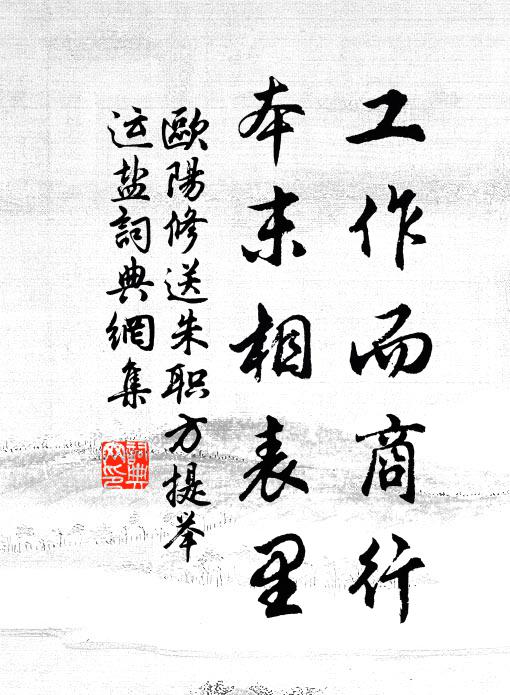 工作而商行
本末相表里
歐陽修送朱职方提举
运盐詞典網集
詞典